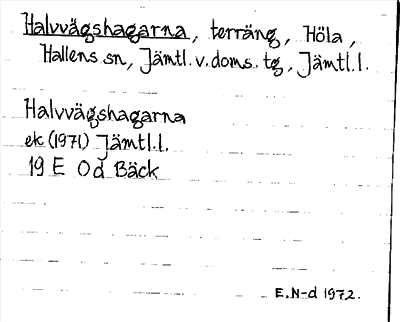 Halvvägshagarna, terräng, Höla,
Hallens sn, Jämtl.v.doms.tg, Jämtl.l.
Halvvägshagarna
ek (1971) Jämtl.l.
19 E 0d Bäck
E.N-d 1972.